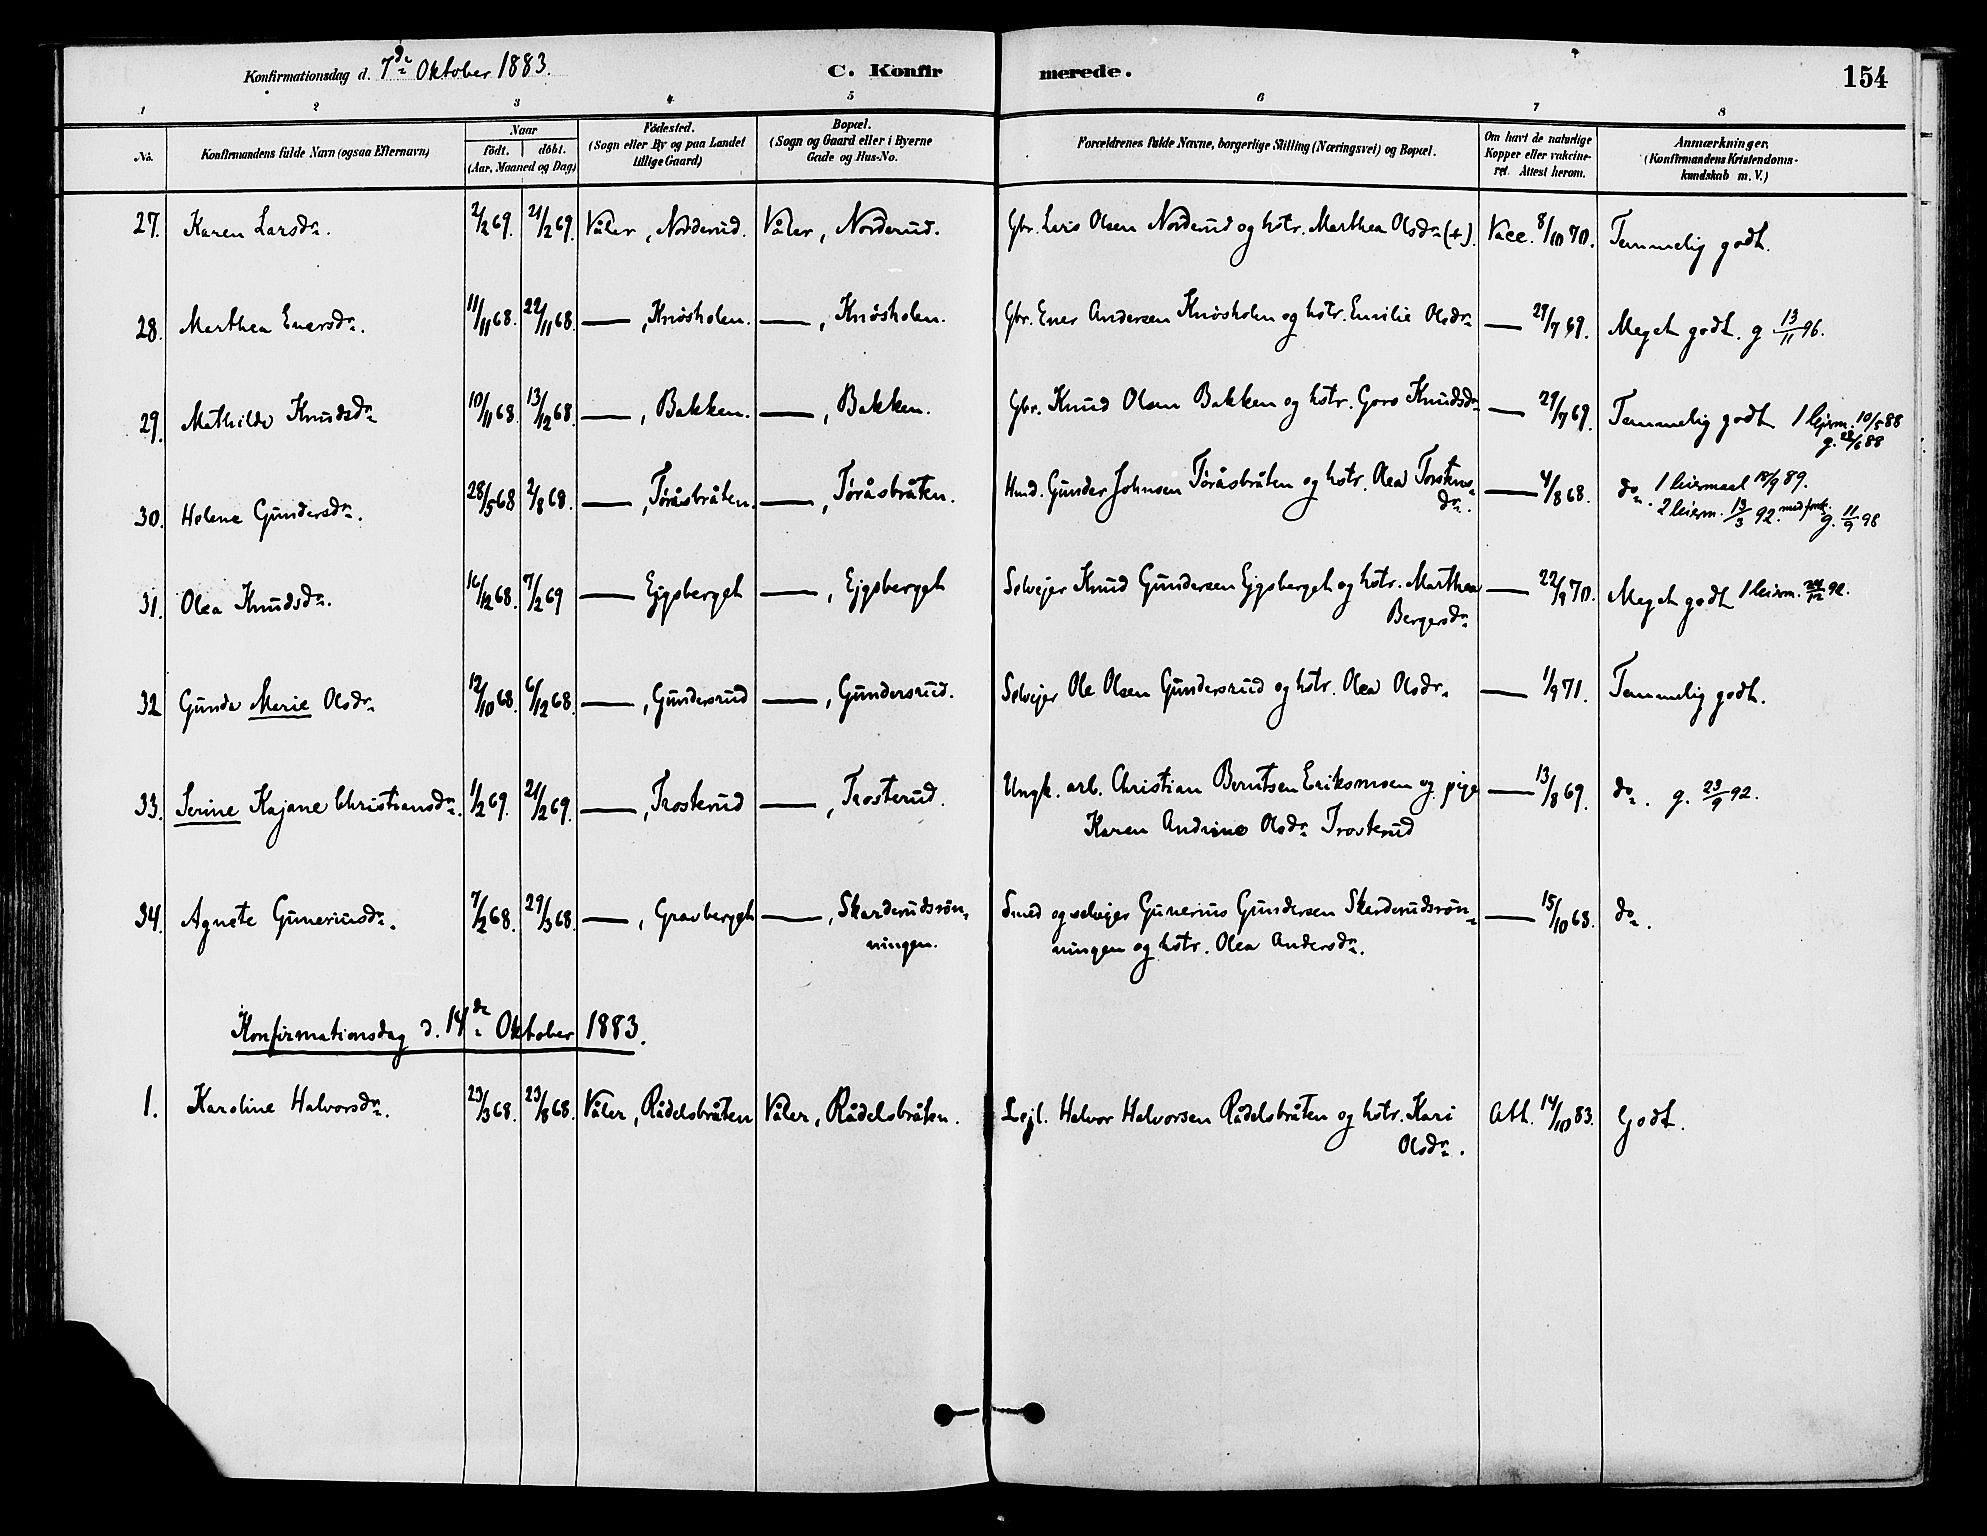 Konfirmationsdag d. 7de Oktober 1883.
C. Konfirmerede.
154
1 2 3 4 5 6 7 8
No. Konfirmandens fulde Navn (ogsaa Efternavn) Naar født, døbt. (Aar, Maaned og Dag) Fødested. (Sogn eller By og paa Landet tillige Gaard) Bopæl. (Sogn og Gaard eller i Byerne Gade og Hus-No. Forældrenes fulde Navne, borgerlige Stilling (Næringsvei) og Bopæl. Om havt de naturlige Kopper eller vakcineret. Attest herom. Anmærkninger. (Konfirmandens Kristendomskundskab m. V.)
27. Karen Larsdr. 2/2 69. 21/2 69. Våler, Norderud. Våler, Norderud. Gbr. Lars Olsen Norderud og hstr. Marthea Olsdr (+). Vacc. 8/10 70. Temmelig godt.
28. Marthea Enersdr. 11/11 68. 22/11 68. — , Knøsholen. — , Knøsholen. Gbr. Ener Andersen Knøsholen og hstr. Emilie Olsdr — 29/7 69. Meget godt. g 13/11 96.
29. Mathilde Knudsdr 10/11 68. 13/12 68. — , Bakken. — , Bakken. Gbr. Knud Olsen Bakken og hstr. Goro Knudsdr — 29/7 69. Temmelig godt 1 leierm. 10/5 88
g. 28/6 88
30. Helene Gundersdr. 28/5 68 2/8 68. — , Tøråsbråten. — , Tøråsbråten. Hmd. Gunder Johnsen Tøråsbråten og hstr. Olea Torstens-
dr. — 4/8 68. do. 1 leiermaal 18/9 89.
2 leierm. 13/3 92. med forh. g. 11/9 98
31. Olea Knudsdr. 16/12 68. 7/2 69 — Ejgsberget — , Ejgsberget Selvejer Knud Gundersen Ejgsberget og hstr. Marthea
Bergersdr — 22/9 70. Meget godt 1 leierm. 24/12 92.
32 Gunda Marie Olsdr 12/10 68. 6/12 68. — , Gundersrud — , Gundersrud. Selvejer Ole Olsen Gundersrud og hstr. Olea Olsdr. — 1/9 71. Temmelig godt.
33. Serine Kajane Christiansdr. 1/2 69. 21/2 69. — , Trosterud — , Trosterud. Ungk. arb. Christian Berntsen Eriksmoen og pige
Karen Andrine Olsdr Trosterud — 13/8 69. do. g. 23/9 92.
34. Agnete Guneriusdr. 7/2 68. 29/3 68. — , Gravberget — , Skarderudsrøn-
ningen. Smed og selvejer Gunerius Gundersen Skarderudsrøn-
ningen og hstr. Olea Andersdr. — 15/10 68. do.
Konfirmationsdag d. 14de Oktober 1883.
1. Karoline Halvorsdr. 23/3 68. 23/8 68. Våler, Rådelsbråten Våler, Rådelsbråten. Lejl. Halvor Halvorsen Rådelsbråten og hstr. Kari
Olsdr. Att. 14/10 83. Godt.